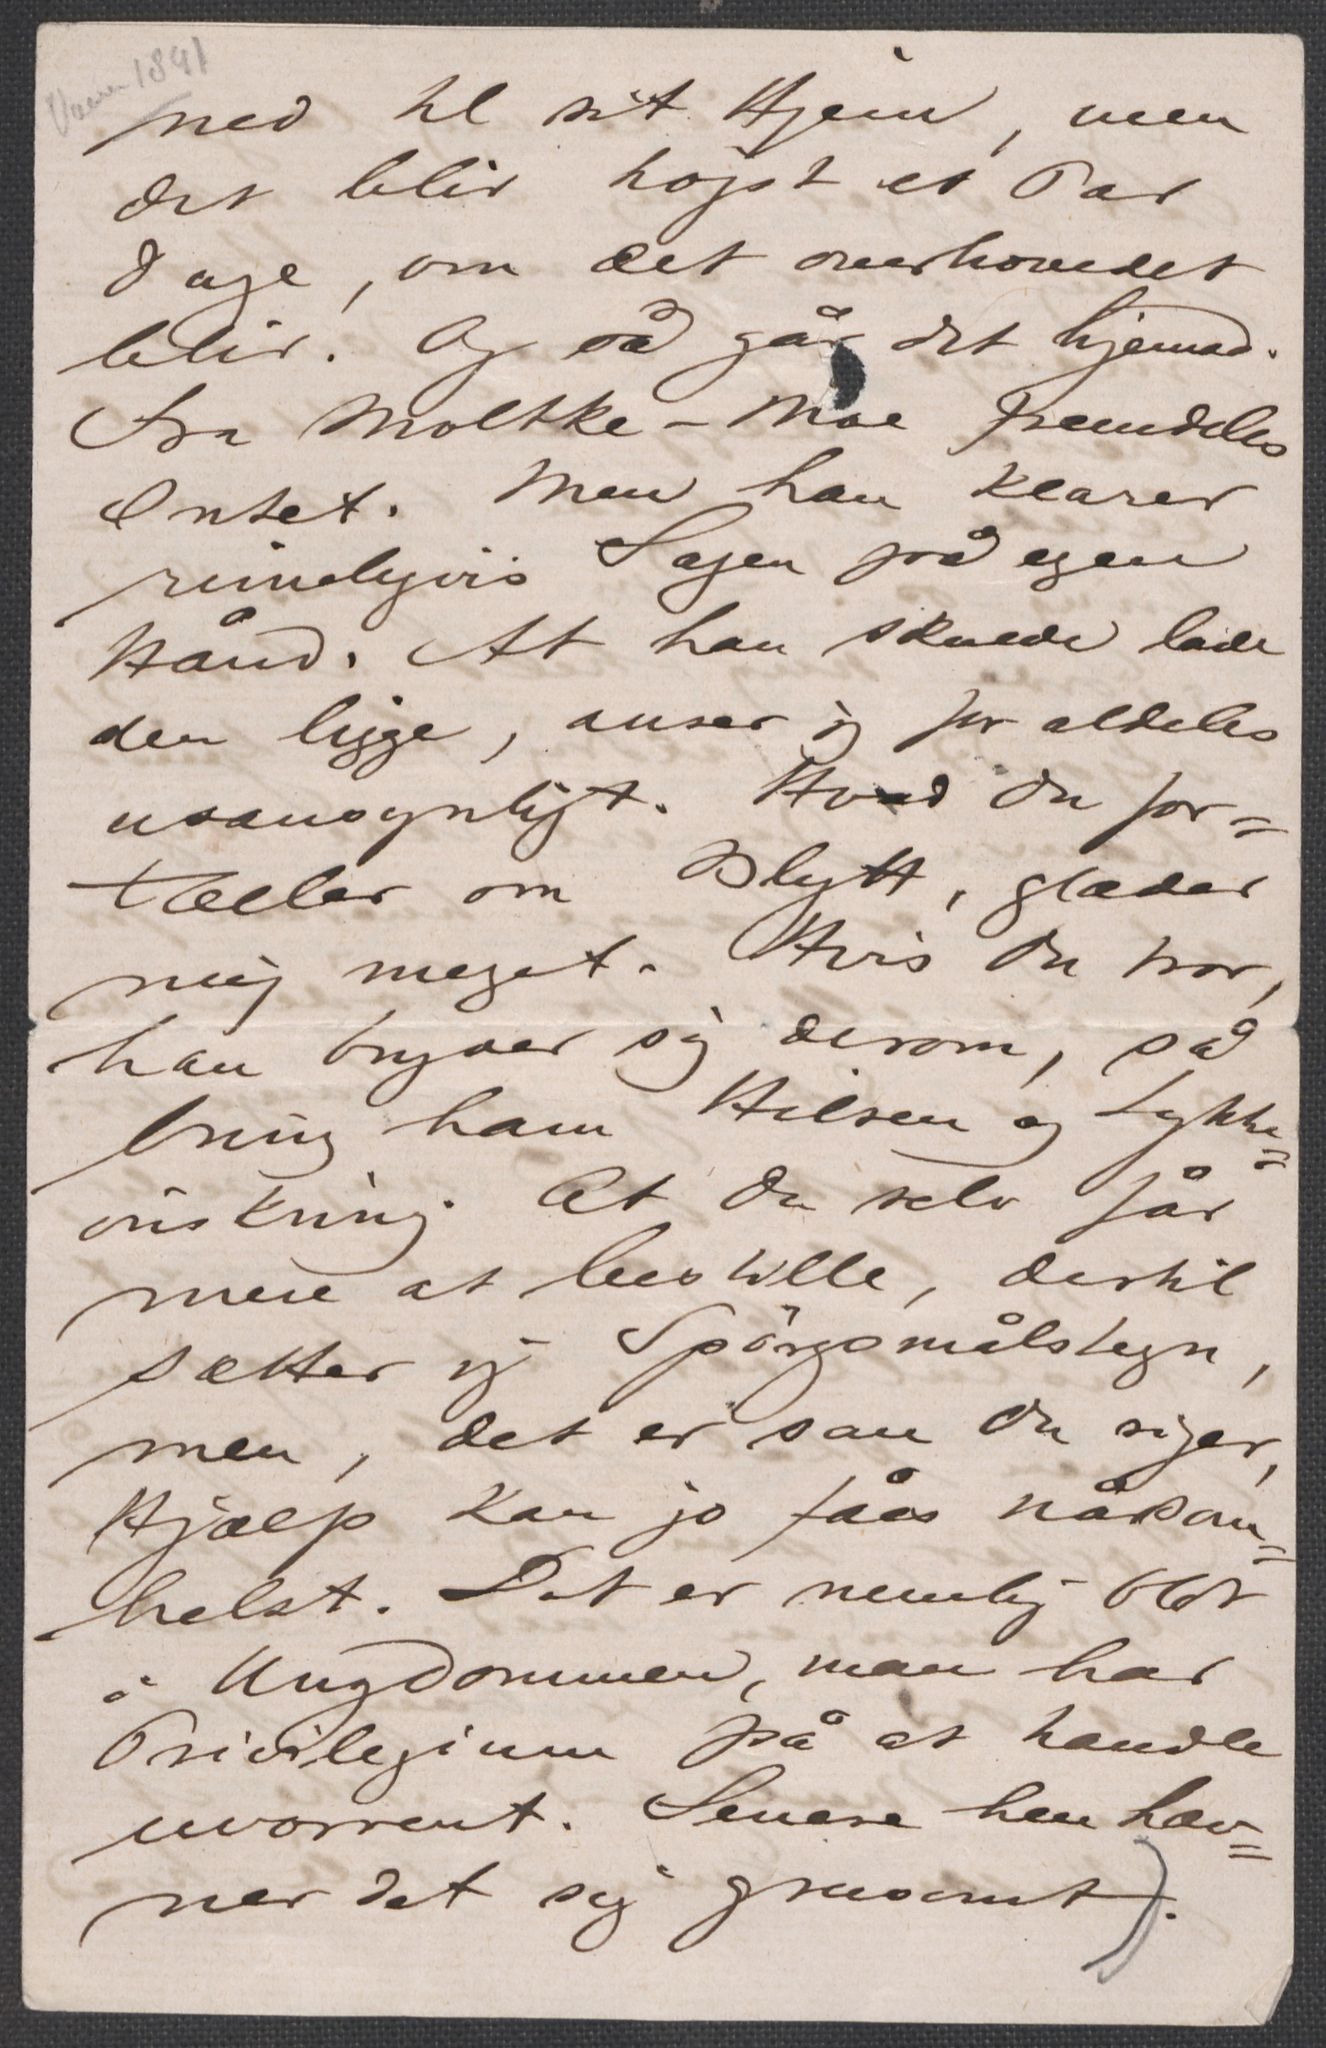 1891
ned til sit Hjem, men
det blir højst et Par
Dage, om det overhovedet
blir. Og så går det hjemad.
Fra Moltke-Moe fremdeles
Intet. Men han klarer
rimeligvis Sagen på egen
Hånd. At han skulde lade
den ligge, anser jeg for aldeles
usansynligt. Hvad Du for=
tæller om Blytt, glæder
mig meget. Hvis Du tror,
han bryder sig derom, så
bring ham Hilsen og Lykk=
önskning. At Du selv får
mere at bestille, dertil
sætter jeg Spörgsmålstegn,
men, det er som Du siger,
Hjælp kan jo fåes nårsom=
helst. Det er nemlig blot
i Ungdommen, man har
Privilegium på at handle
uvorrent. Senere hen hæv=
ner det sig grusomt).